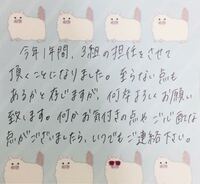 今年1年間、3組の担任をさせて
頂くことになりました。至らない点も
あるかと存じますが、何卒よろしくお願い
致します。何かお気付きの点やご心配な
点がございましたら、いつでもご連絡下さい。